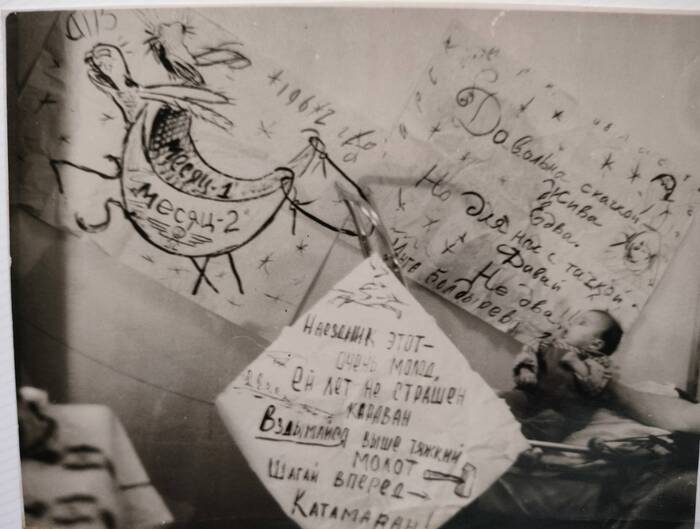 МЕСЯЦ-1
МЕСЯЦ-2
Давольна скачкой
Жива
едва.
Но для нас с тачкой -
Фавай
Не два!!!
Болдырев
НАЕЗДНИК ЭТОТ-
ОЧЕНЬ МОЛОД,
ЕЙ ЛЕТ НЕ СТРАШЕН
КАРАВАН
ВЗДЫМАЙСЯ ВЫШЕ ТЯЖКИЙ
МОЛОТ
ШАГАЙ ВПЕРЕД
КАТАМАРАН!